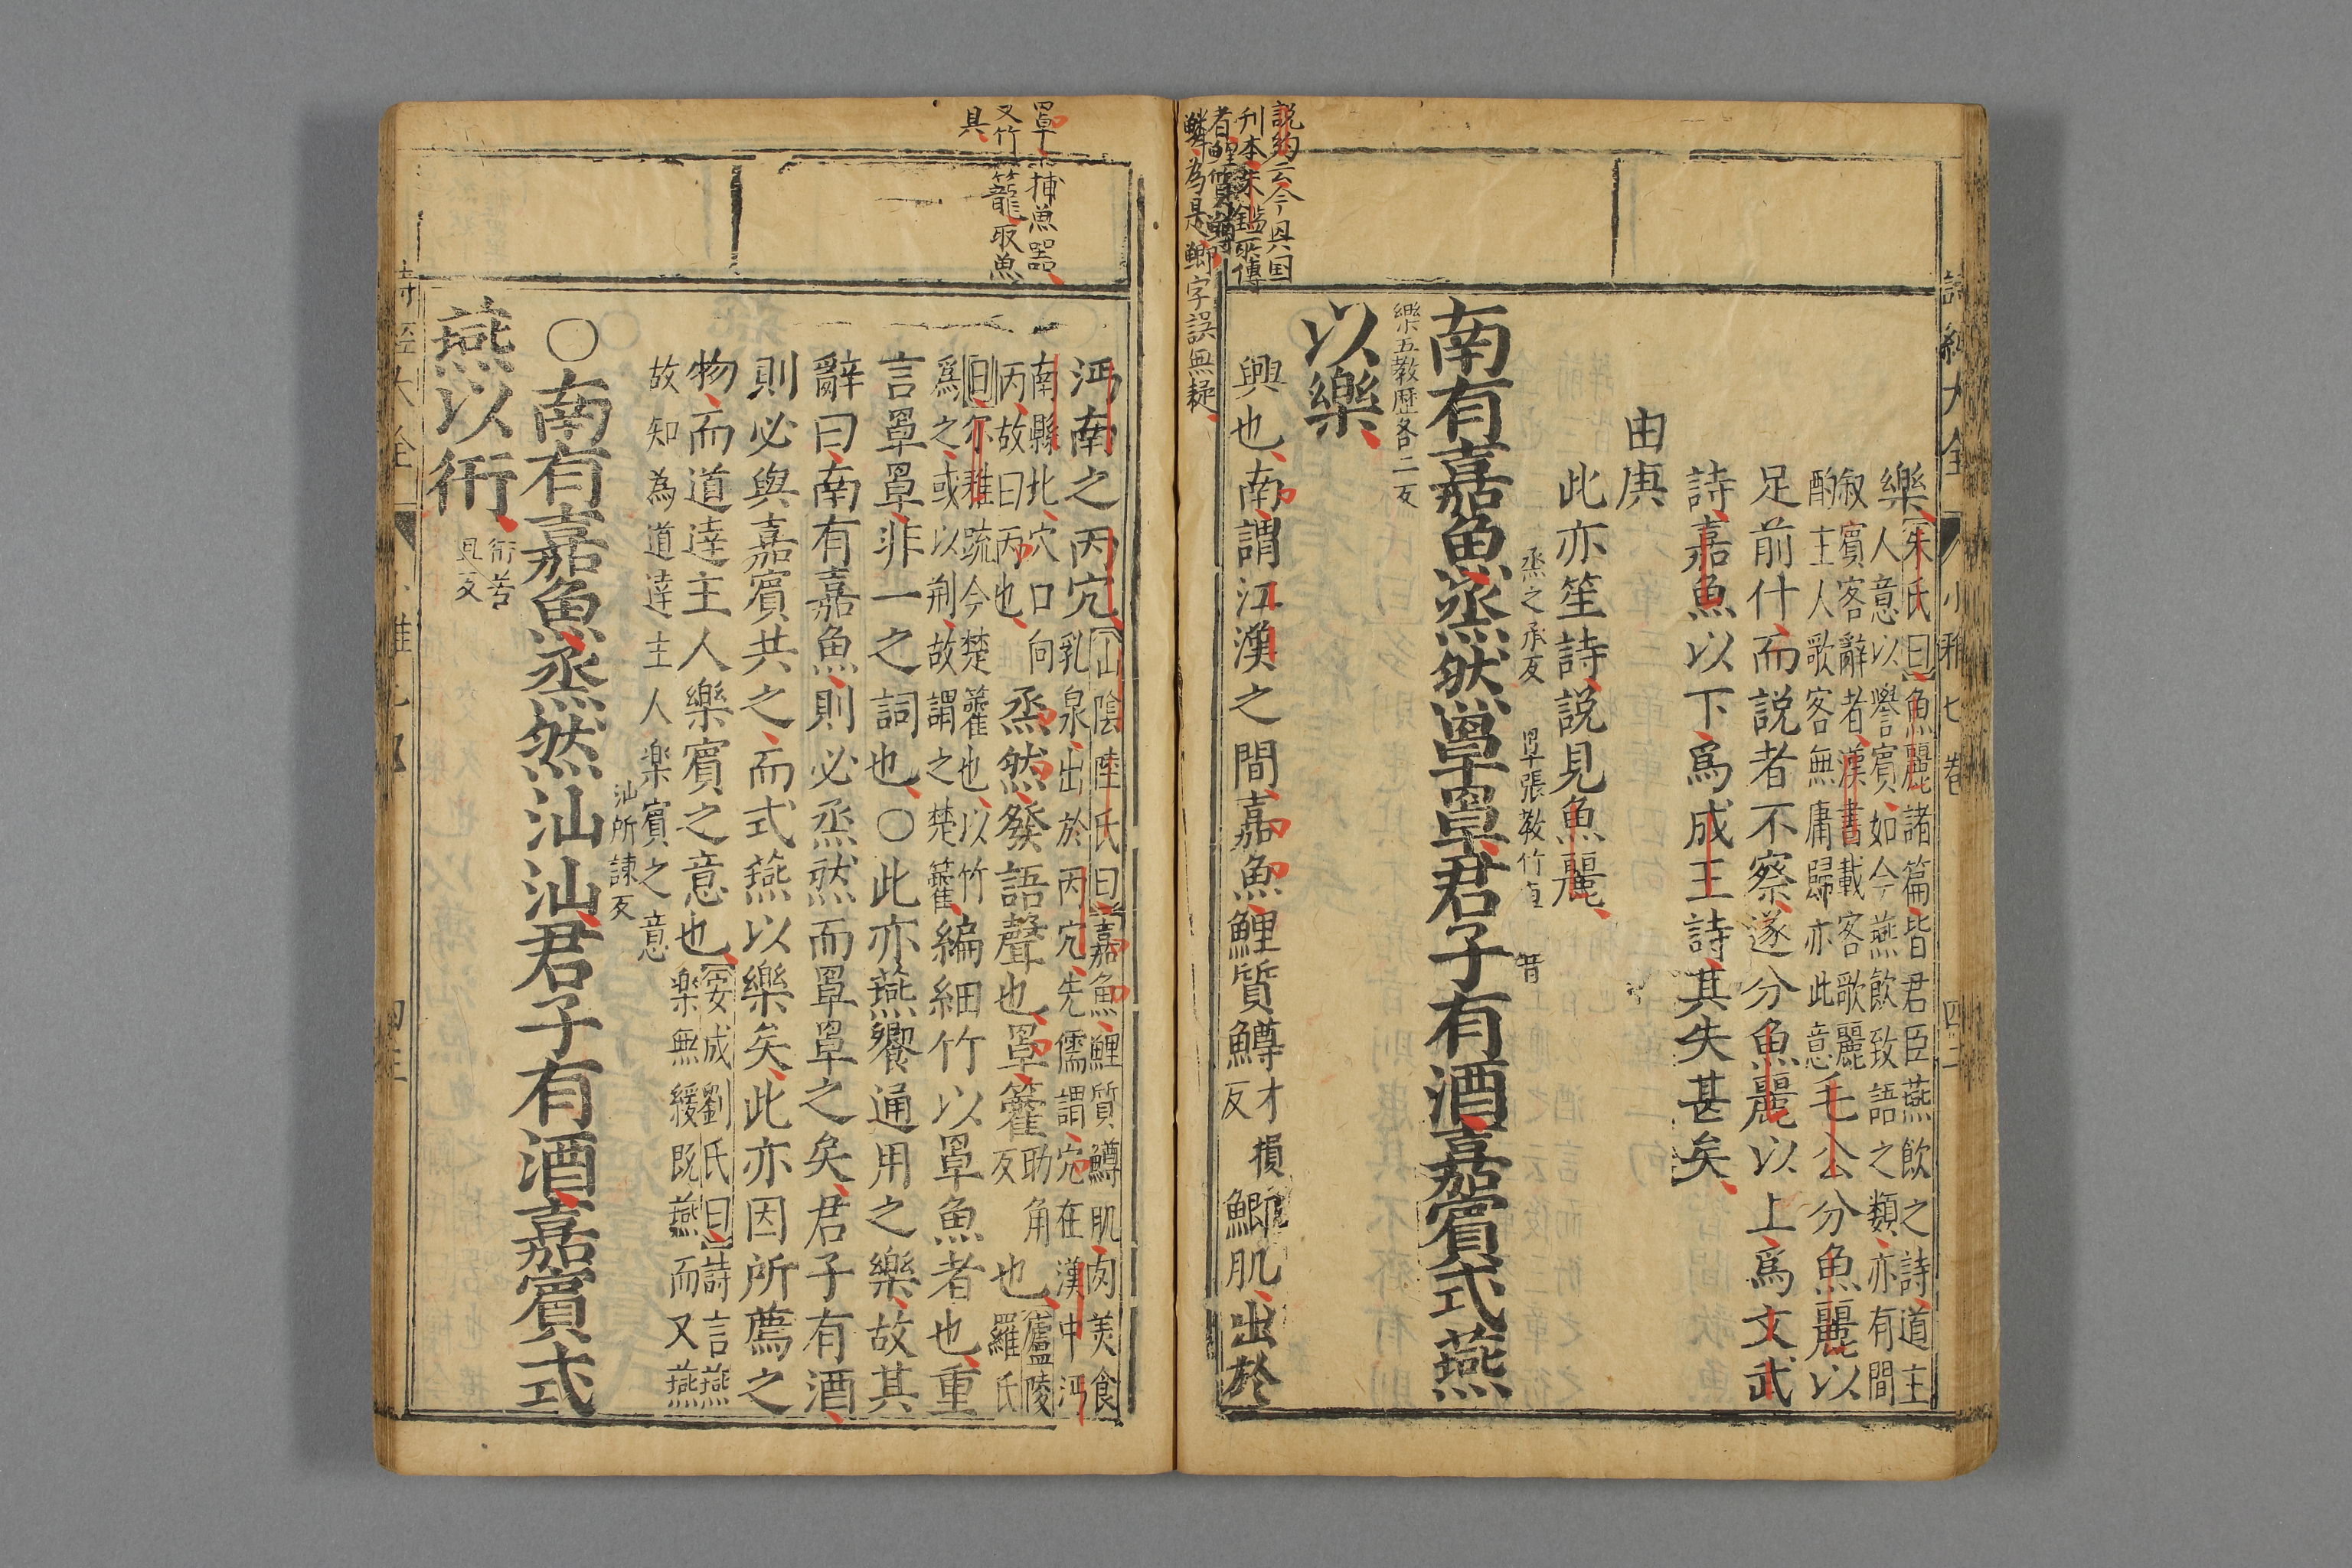 説約云今具国
刊本朱鑑所傳
者鯉質鱒
鱗為是鯽字誤無疑
樂
朱氏曰魚麗諸篇皆君臣燕飲之詩道主
人意以譽賓如今燕飲致語之類亦有間
叙賓客辭者漢書載客歌驪
駒主人歌客無庸歸亦此意
毛公分魚麗以
足前什而説者不察遂分魚麗以上爲文武
詩嘉魚以下爲成王詩其失甚矣
由庚
此亦笙詩説見魚麗
烝之承反 罩張教竹卓
南有嘉魚烝然罩罩君子有酒嘉賓式燕
樂五教歷各二反
以樂
興也南謂江漢之間嘉魚鯉質鱒
才損
反
鯽肌出於
詩經大全
小雅七卷
四二
罩捕魚器
又竹籠取魚
具
沔南之丙穴
山陰陸氏曰嘉魚鯉質鱒肌肉美食
乳泉出於丙穴先儒謂穴在漢中沔
南縣北穴口向
丙故曰丙也
烝然發語聲也罩籗
助角
反
也
廬陵
羅氏
曰尔雅疏今楚籗也以竹
爲之或以荆故謂之楚籗
編細竹以罩魚者也重
言罩罩非一之詞也○此亦燕饗通用之樂故其
辭曰南有嘉魚則必烝然而罩罩之矣君子有酒
則必與嘉賓共之而式燕以樂矣此亦因所薦之
物而道達主人樂賓之意也
安成劉氏曰詩言燕
樂無緩既燕而又燕
故知為道達主人楽賓之意
汕所諫反
○南有嘉魚烝然汕汕君子有酒嘉賓式
燕以衎
衎苦
旦反
詩經大全